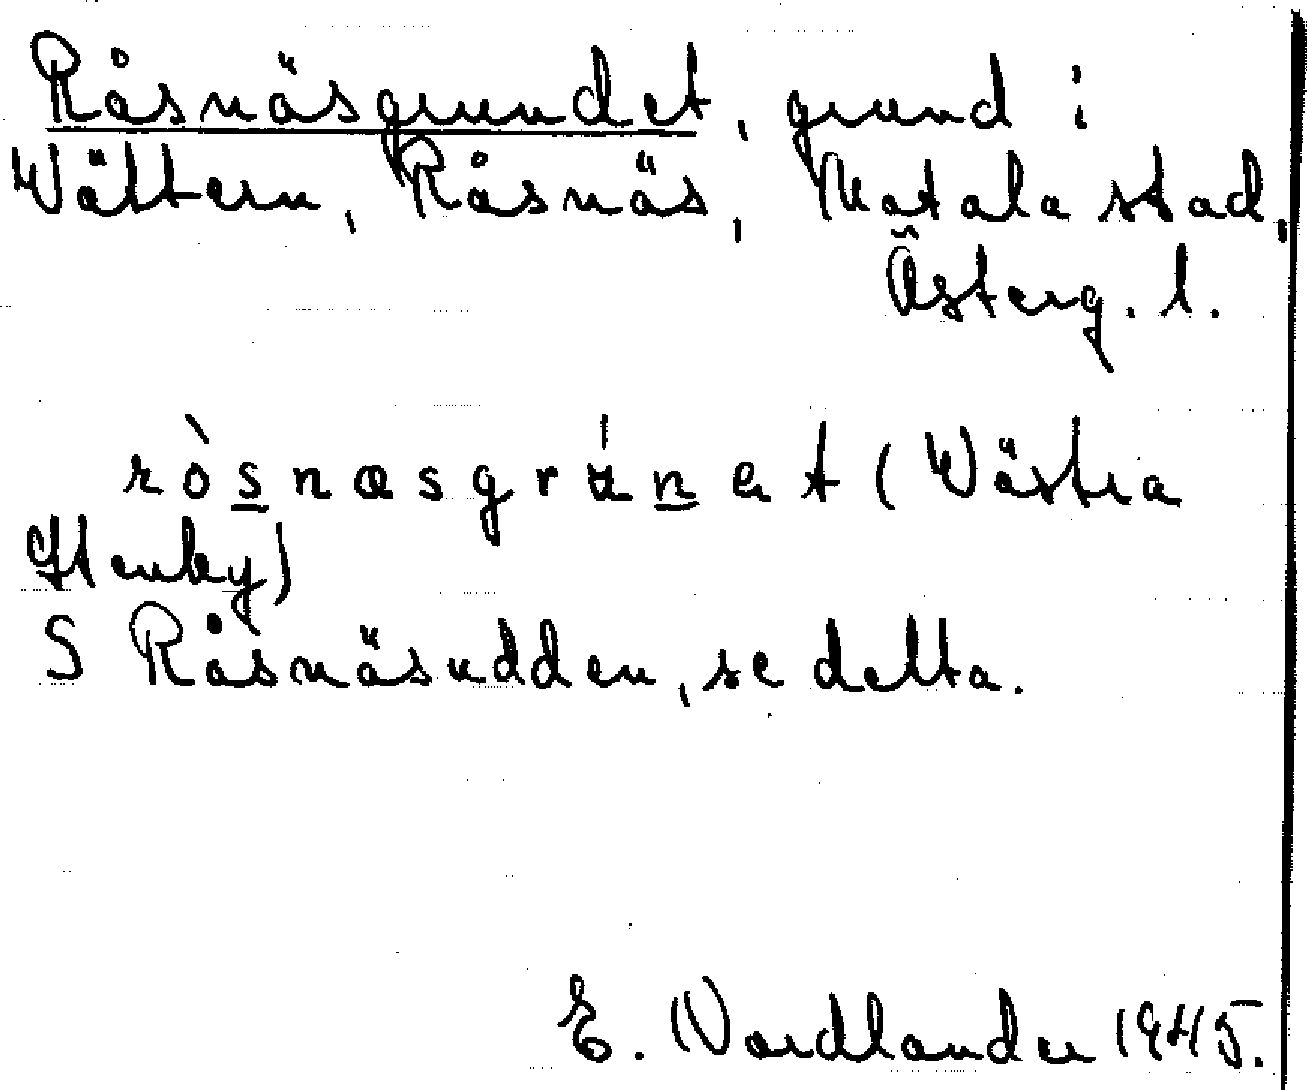 Råsnäsgrundet, grund i
Wättern, Råsnäs, Motala stad,
Österg. l.
ròsnæsgrúnet (Västra
Stenby)
S Råsnäsudden, se detta.
E. Nordlander 1945.